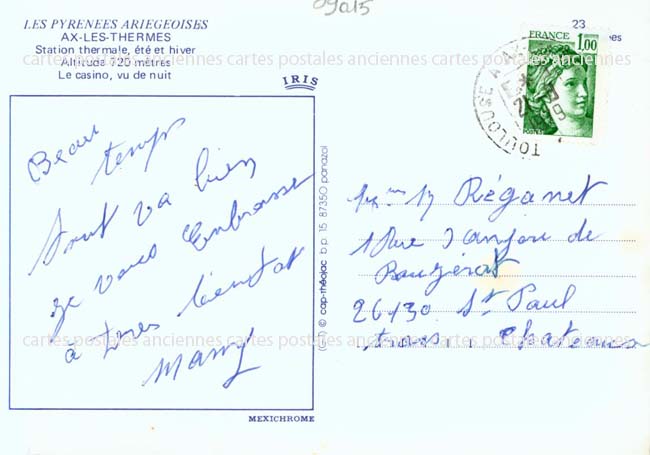 09a15
LES PYRENEES ARIEGEOISES
AX-LES-THERMES
Station thermale, été et hiver
Altitude 720 mètres
Le casino, vu de nuit
IRIS
23
FRANCE
1,00
TOULOUSE
cartes postales anciennes cartes postales anciennes cartes postales anciennes cartes postales anciennes
Beau
temps
tout va bien
je vous Embrasse
à tres bientot
Mamy
MEXICHROME
© cap-théojac b.p. 15 87350 panazol
Réganet
1 Rue d'anjou de
26130 St Paul
trois Chateaux
cartes postales anciennes cartes postales anciennes cartes postales anciennes cartes postales anciennes